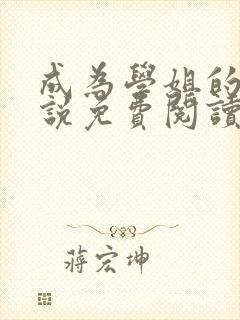 成為學姐的
說免費閱讀
蔣宏坤